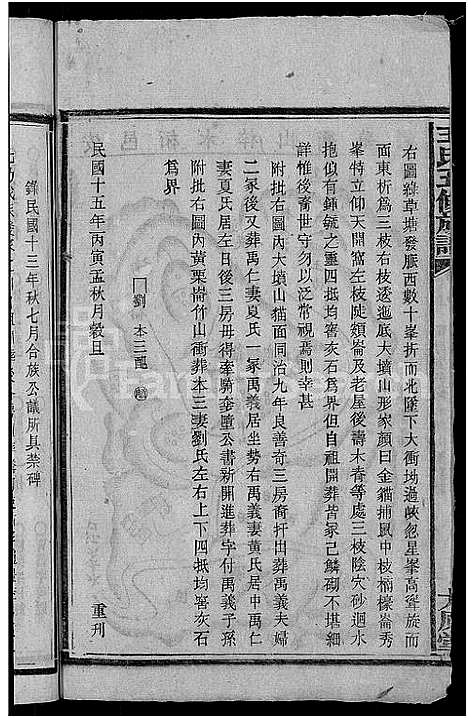 王氏五修族譜
右圖雜草塘發脈西數十峯折而北墜下大衝坳過峽忽星峯高聳旋而
面東析爲三枝右枝逶迤底大墳山形家顏曰金貓捕鼠中枝楠檬崙秀
峯特立仰天開窩左枝陡頞崙及老屋後壽木香等處三枝陰穴砂迴水
抱俱有鍾毓之靈四抵均窖灰石爲界但自祖開葬皆冢己鱗砌不堪細
詳惟後裔世守勿以泛常視焉則幸甚
附批右圖內大墳山猫面同治九年良善奇三房裔扦出葬禹義夫婦
二冢後又葬禹仁妻夏氏一冢禹義居坐勢右禹義妻黄氏居中禹仁
妻夏氏居左日後三房毋得牽騎套壓公書新開進葬字付禹義子孫
附批右圖內黄栗崙竹山衝葬本三妻劉氏左右上下四抵均窖灰石
爲界
劉本三配
民國十五年丙寅孟秋月穀旦
重刊
錄民國十三年秋七月合族公議所具禁碑